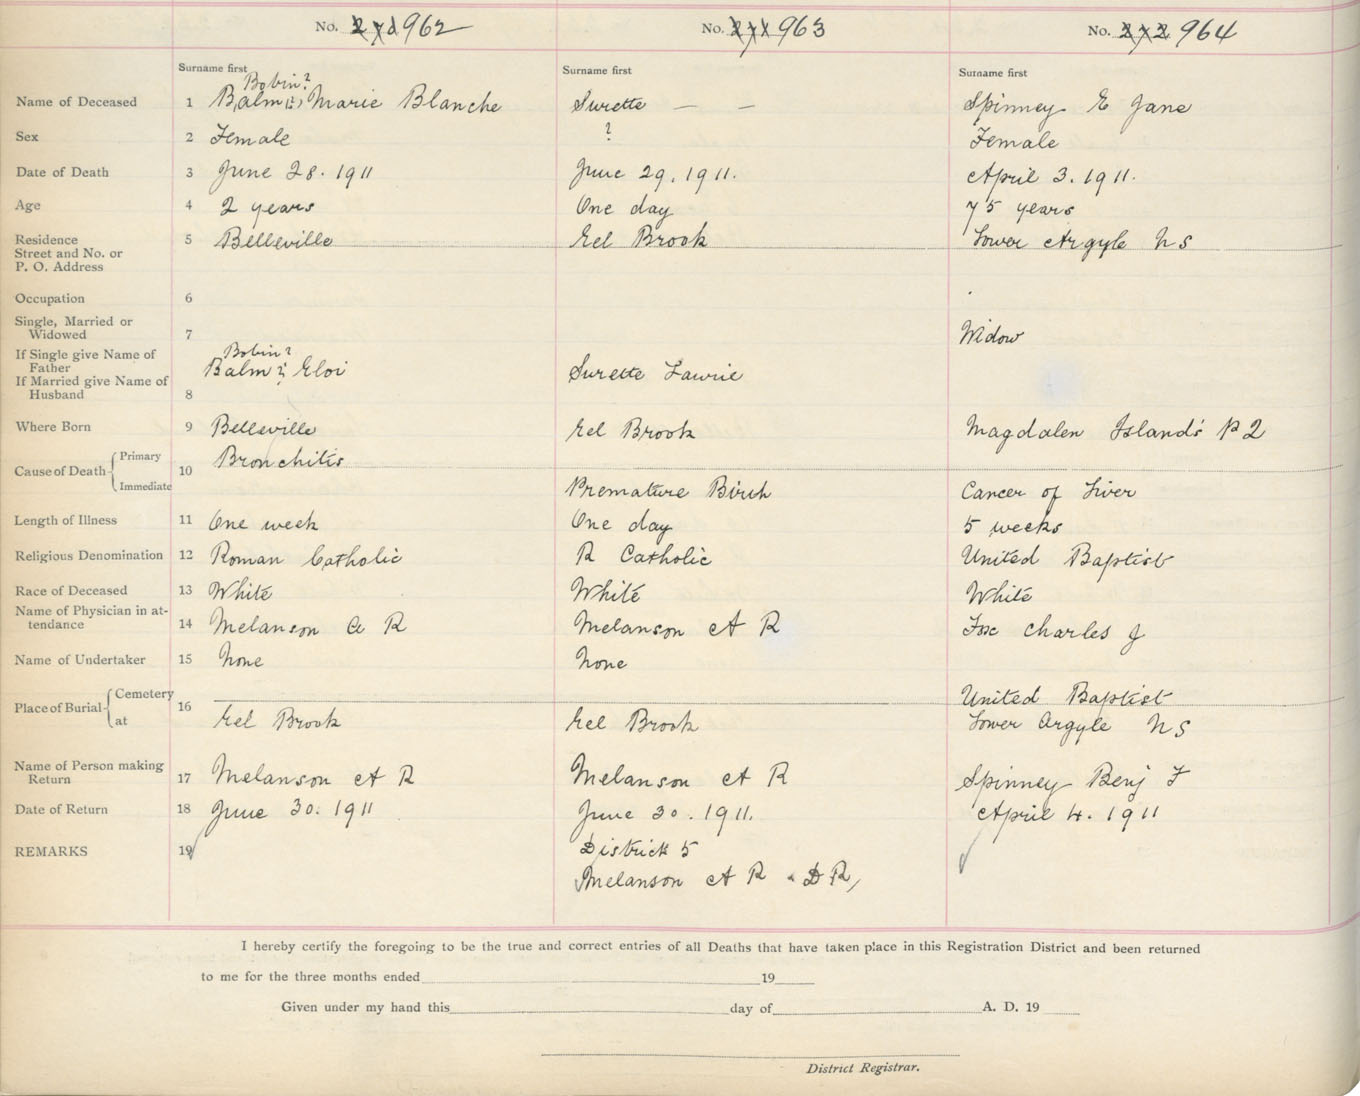 No. 962
No. 963
No. 964
Surname first
Surname first
Surname first
Bobin?
Name of Deceased 1 Balm(?) Marie Blanche Surette — — Spinney E Jane
Sex 2 Female ? Female
Date of Death 3 June 28. 1911 June 29. 1911. April 3. 1911.
Age 4 2 years One day 75 years
Residence 5 Belleville Eel Brook Lower Argyle N S
Street and No. or
P. O. Address
Occupation 6
Single, Married or
Widowed 7 Widow
If Single give Name of Bobin?
Father Balm ? Eloi Surette Lawrie
If Married give Name of
Husband 8
Where Born 9 Belleville Eel Brook Magdalen Islands P Q
Cause of Death Primary 10 Bronchitis
Immediate Premature Birth Cancer of Liver
Length of Illness 11 One week One day 5 weeks
Religious Denomination 12 Roman Catholic R Catholic United Baptist
Race of Deceased 13 White White White
Name of Physician in at-
tendance 14 Melanson A R Melanson A R Fox Charles J
Name of Undertaker 15 None None
Place of Burial Cemetery 16 United Baptist
at Eel Brook Eel Brook Lower Argyle N S
Name of Person making
Return 17 Melanson A R Melanson A R Spinney Benj F
Date of Return 18 June 30. 1911 June 30. 1911. April 4. 1911
REMARKS 19 District 5
Melanson A R D R,
I hereby certify the foregoing to be the true and correct entries of all Deaths that have taken place in this Registration District and been returned
to me for the three months ended 19
Given under my hand this day of A. D. 19
District Registrar.